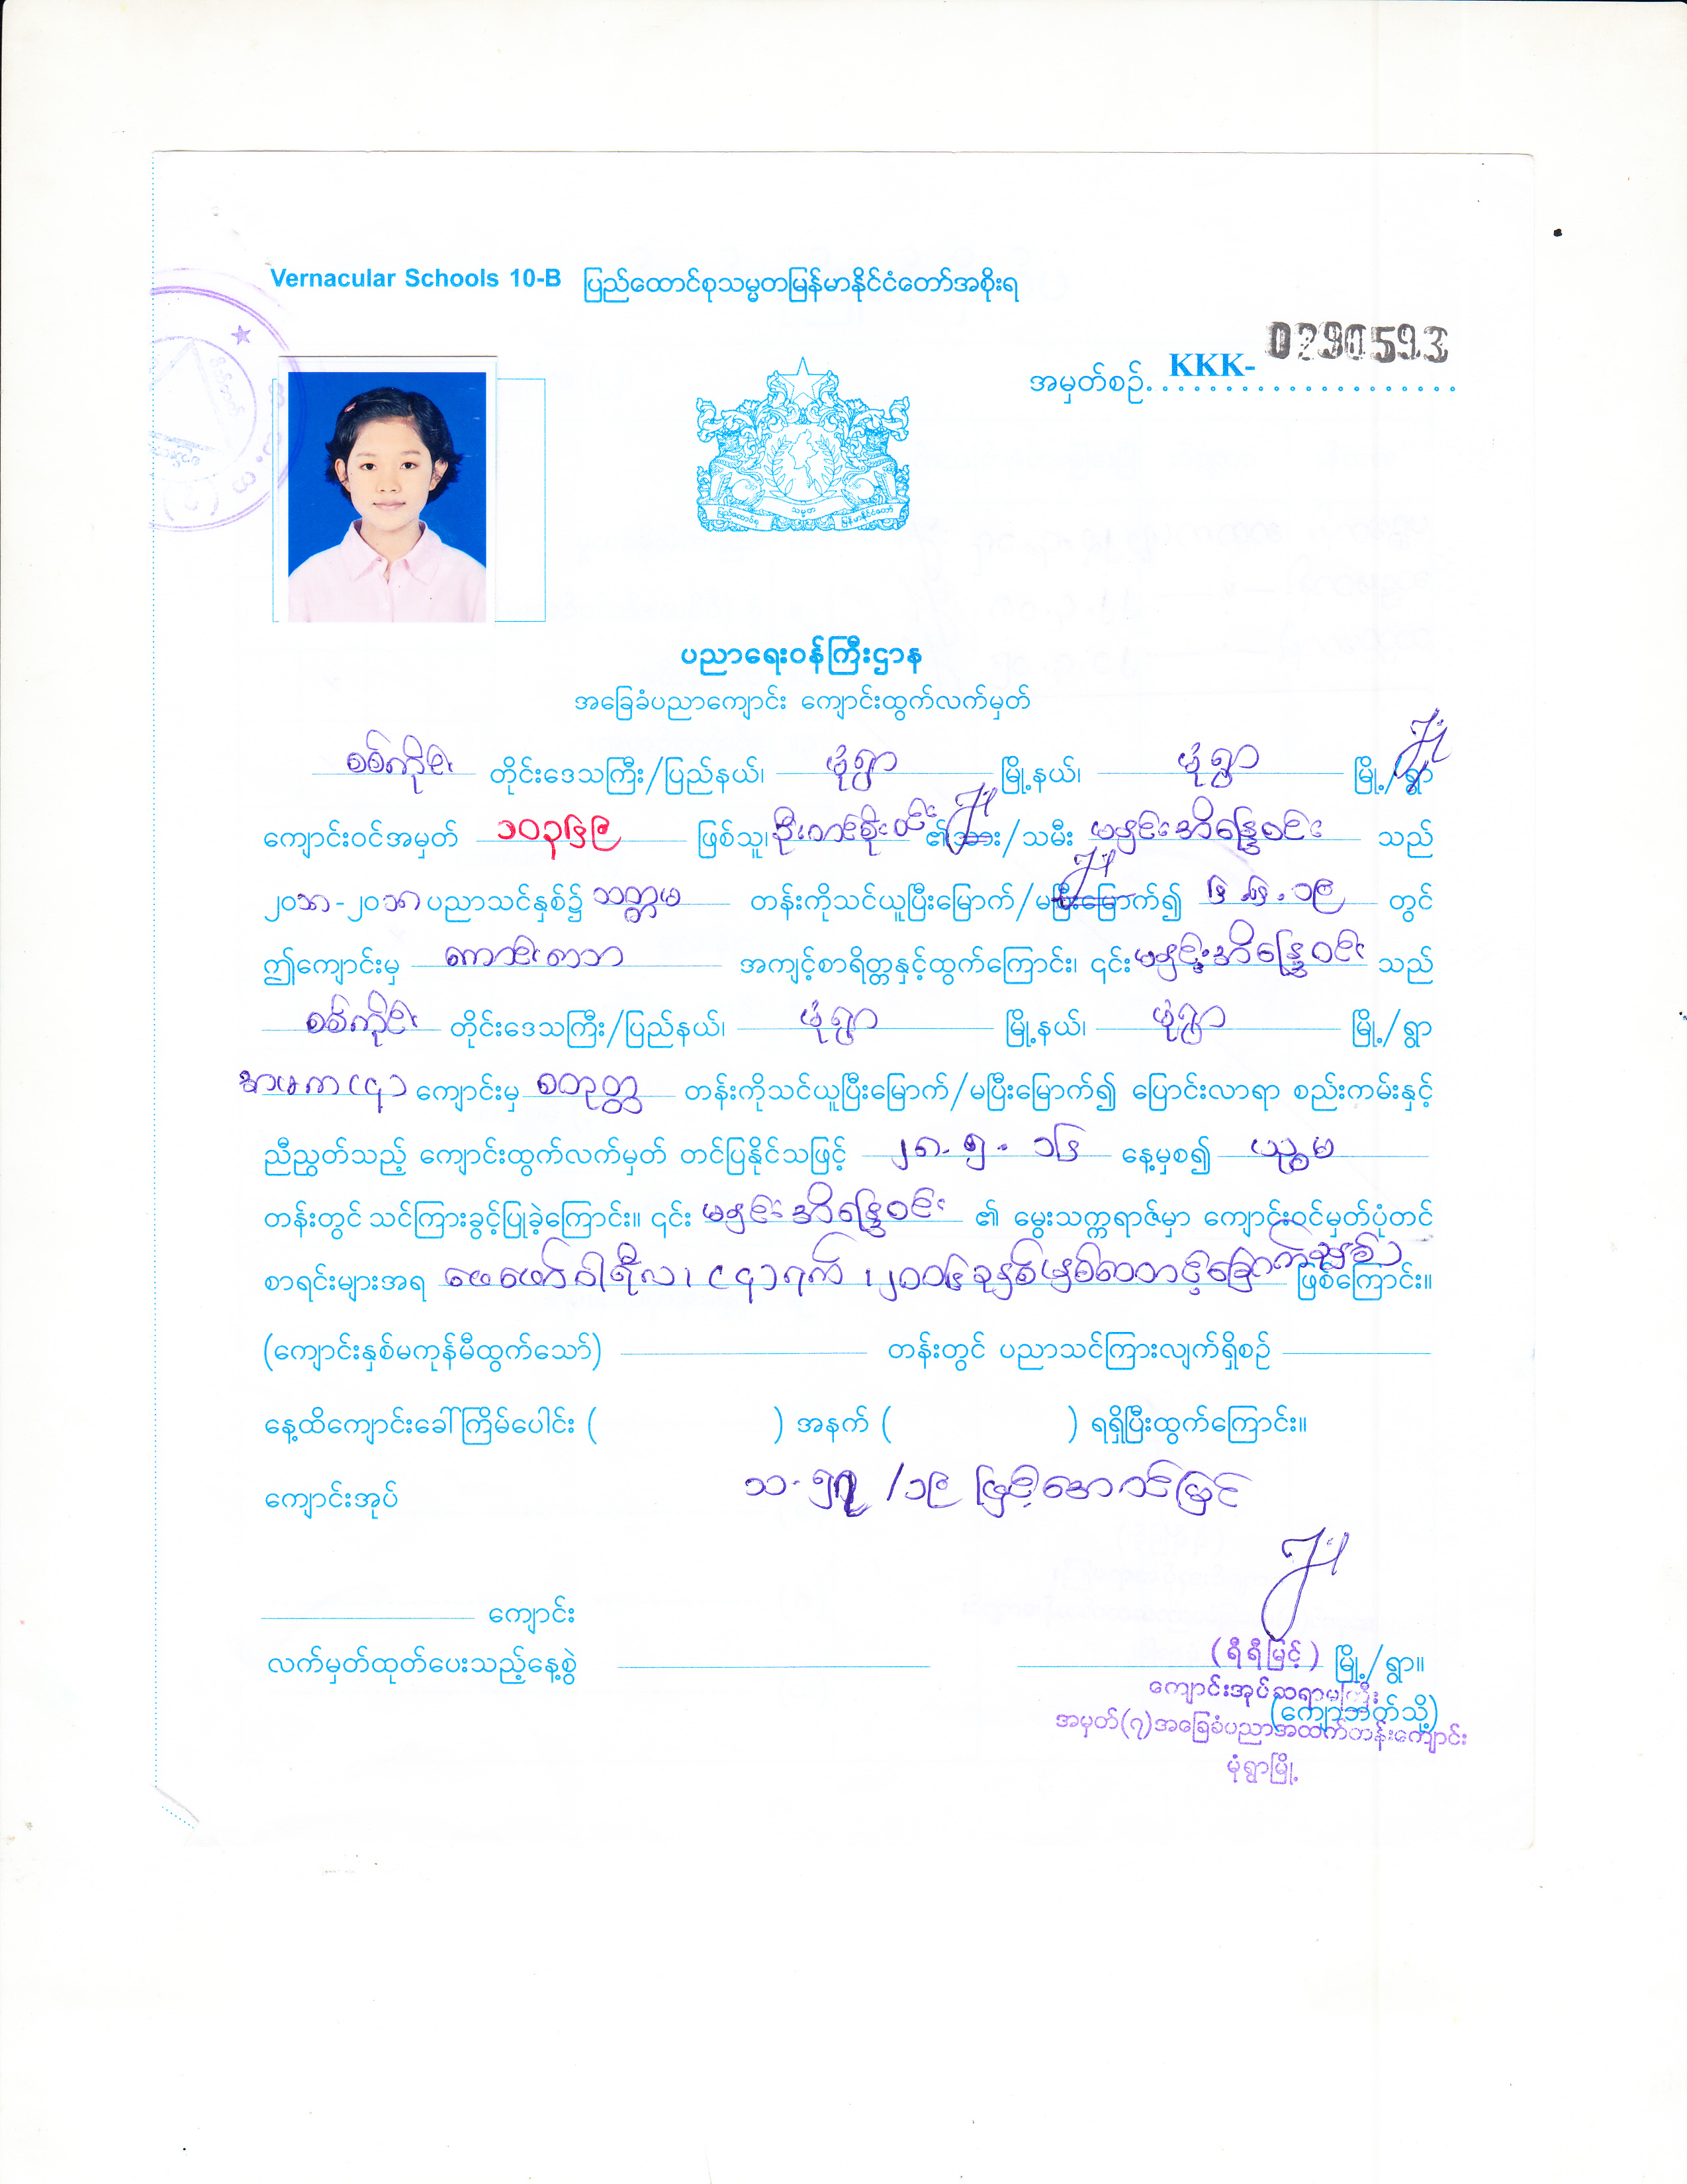 Vernacular Schools 10-B ပြည်ထောင်စုသမ္မတမြန်မာနိုင်ငံတော်အစိုးရ
အမှတ်စဉ်. KKK- 0290593
ပညာရေးဝန်ကြီးဌာန
အခြေခံပညာကျောင်း ကျောင်းထွက်လက်မှတ်
စစ်ကိုင်း တိုင်းဒေသကြီး/ပြည်နယ်၊ မုံရွာ မြို့နယ်၊ မုံရွာ မြို့/ရွာ
ကျောင်းဝင်အမှတ် ၁၀၃၆၉ ဖြစ်သူ၊ ၏သား/သမီး သည်
၂၀၁၈-၂၀၁၈ ပညာသင်နှစ်၌ သတ္တမ တန်းကိုသင်ယူပြီးမြောက်/မပြီးမြောက်၍ ၆.၆.၁၉ တွင်
ဤကျောင်းမှ ကောင်းသော အကျင့်စာရိတ္တနှင့်ထွက်ကြောင်း၊ ၎င်း သည်
စစ်ကိုင်း တိုင်းဒေသကြီး/ပြည်နယ်၊ မုံရွာ မြို့နယ်၊ မုံရွာ မြို့/ရွာ
ကျောင်းမှ စတုတ္ထ တန်းကိုသင်ယူပြီးမြောက်/မပြီးမြောက်၍ ပြောင်းလာရာ စည်းကမ်းနှင့်
ညီညွတ်သည့် ကျောင်းထွက်လက်မှတ် တင်ပြနိုင်သဖြင့် ၂၈.၅.၁၆ နေ့မှစ၍ ပဉ္စမ
တန်းတွင် သင်ကြားခွင့်ပြုခဲ့ကြောင်း။ ၎င်း ၏ မွေးသက္ကရာဇ်မှာ ကျောင်းဝင်မှတ်ပုံတင်
စာရင်းများအရ ဖေဖော်ဝါရီလ၊ (၄)ရက်၊ ၂၀၀၆ခုနှစ် နှစ်ထောင့်ခြောက်ခုနှစ် ဖြစ်ကြောင်း။
(ကျောင်းနှစ်မကုန်မီထွက်သော်) တန်းတွင် ပညာသင်ကြားလျက်ရှိစဉ်
နေ့ထိကျောင်းခေါ်ကြိမ်ပေါင်း ( ) အနက် ( ) ရရှိပြီးထွက်ကြောင်း။
ကျောင်းအုပ် /၁၉ ဖြင့်အောင်မြင်
ကျောင်း
လက်မှတ်ထုတ်ပေးသည့်နေ့စွဲ (ရီရီမြင့်) မြို့/ရွာ။
ကျောင်းအုပ်ဆရာမကြီး
(ကျောဘက်သို့)
အမှတ်(၇)အခြေခံပညာအထက်တန်းကျောင်း
မုံရွာမြို့